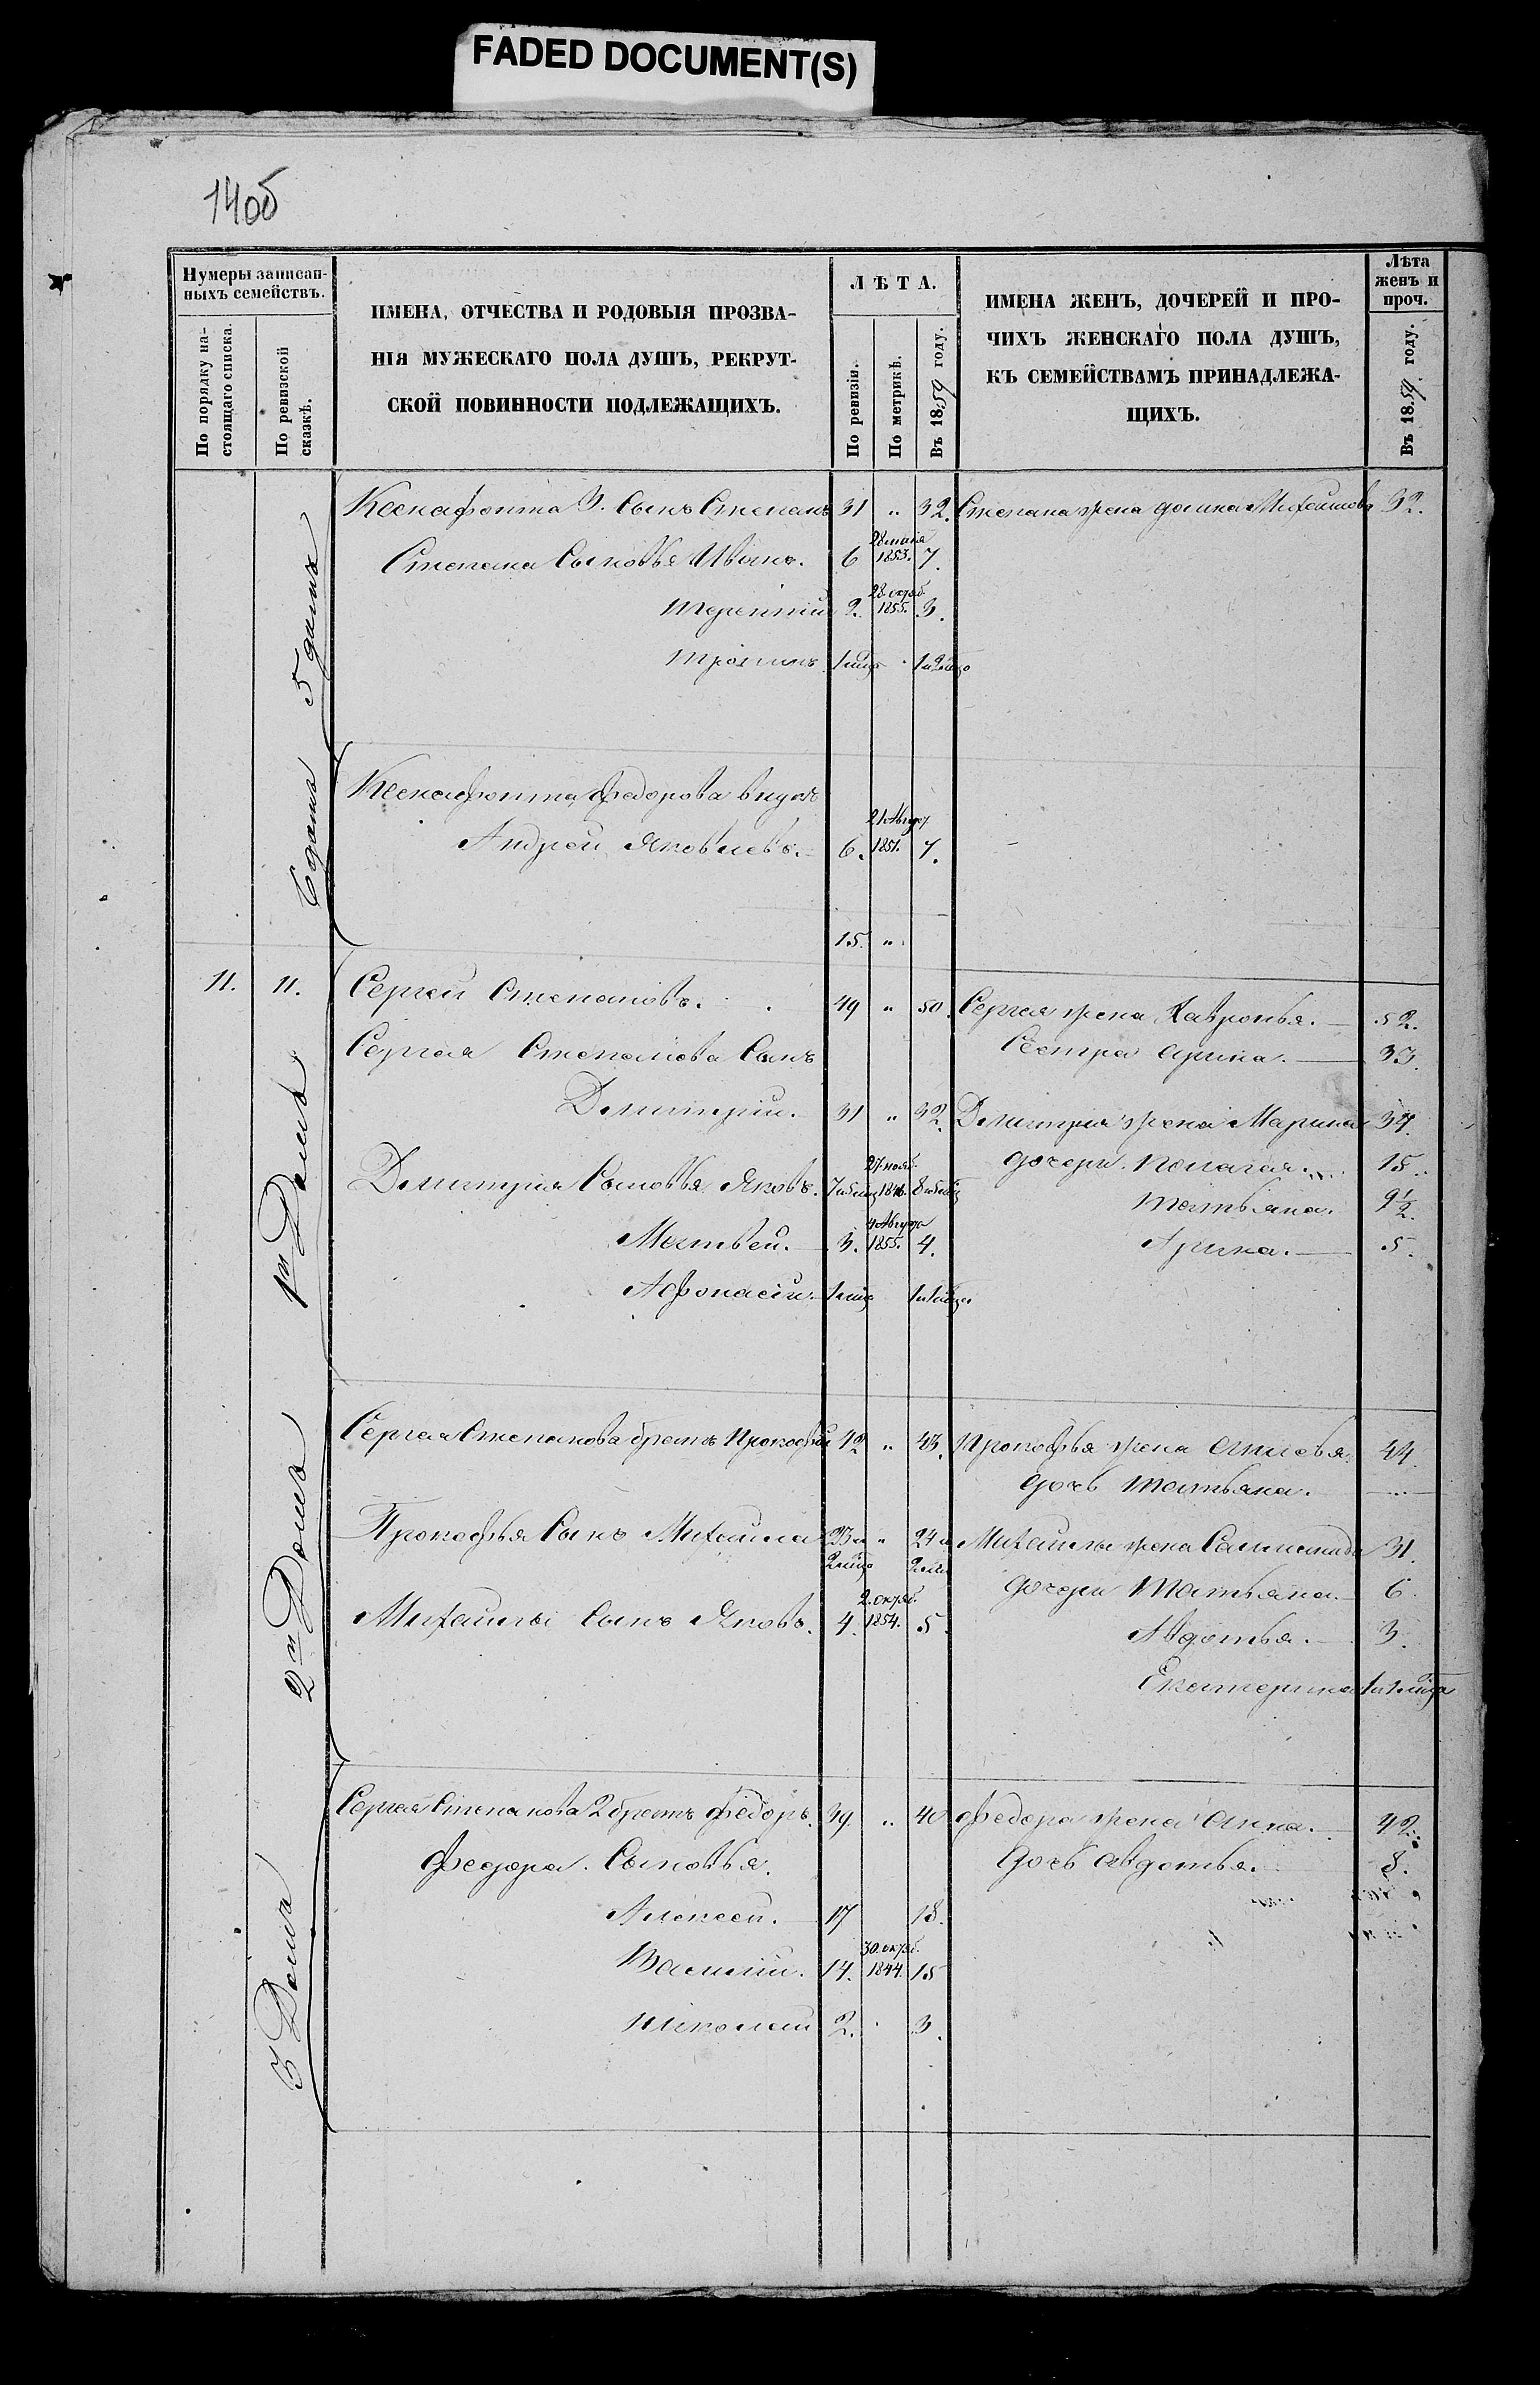 FADED DOCUMENT(S)
14об
Нумеры записан-
ныхъ семействъ.
По порядку на-
стоящаго списка.
По ревизской
сказкѣ.
ИМЕНА, ОТЧЕСТВА И РОДОВЫЯ ПРОЗВА-
НІЯ МУЖЕСКАГО ПОЛА ДУШЪ, РЕКРУТ-
СКОЙ ПОВИННОСТИ ПОДЛЕЖАЩИХЪ.
ЛѢТА.
По ревизіи.
По метрикѣ.
Въ 1859 году.
ИМЕНА ЖЕНЪ, ДОЧЕРЕЙ И ПРО-
ЧИХЪ ЖЕНСКАГО ПОЛА ДУШЪ,
КЪ СЕМЕЙСТВАМЪ ПРИНАДЛЕЖА-
ЩИХЪ.
Лѣта
женъ и
проч.
Въ 1859 году.
Ксенафонта 3. Сынъ Степанъ 31 " 32. Степана жена Михаилова 32.
Степана Сыновья Иванъ. 6 1853. 7.
Терентій 2. 28 октяб. 1855. 3.
5 дома
Ксенафонта Федорова внукъ
Андрей Яковлевъ. 6. 21 Август 1851. 7.
6 дома
15. "
11. 11. Сергей Степановъ. 49 " 50. Сергея жена Хавронья. 52.
Сергея Степанова Сынъ Сестра Арина. 33.
Дмитрій. 31 " 32. Дмитрия жена Марина 34.
Дмитрия Сыновья Яковъ. 27 нояб. 1846. дочери Пелагея. 15.
Татьяна. 9 1/2.
Матвей. 3. 4 Августа 1855. 4. Арина. 5.
Афонасій.
1й Домъ
Сергея Степанова братъ Прокофій 42 " 43. Прокофья жена 44.
дочь Татьяна.
Прокофья Сынъ Михаила 23 и " 24 и Михаилы жена 31.
дочери Татьяна 6.
Михаилы Сынъ Яковъ. 4. 2 октяб. 1854. 5. Авдотья. 3.
Екатерина
2й Домъ
Сергея Степанова 2 братъ Федоръ. 39. " 40 Федора жена Анна. 42.
Федора Сыновья. дочь Авдотья. 8.
Алексей. 17 18.
Василій. 14. 30 октяб. 1844. 15
Николай 2. 3.
3 Домъ